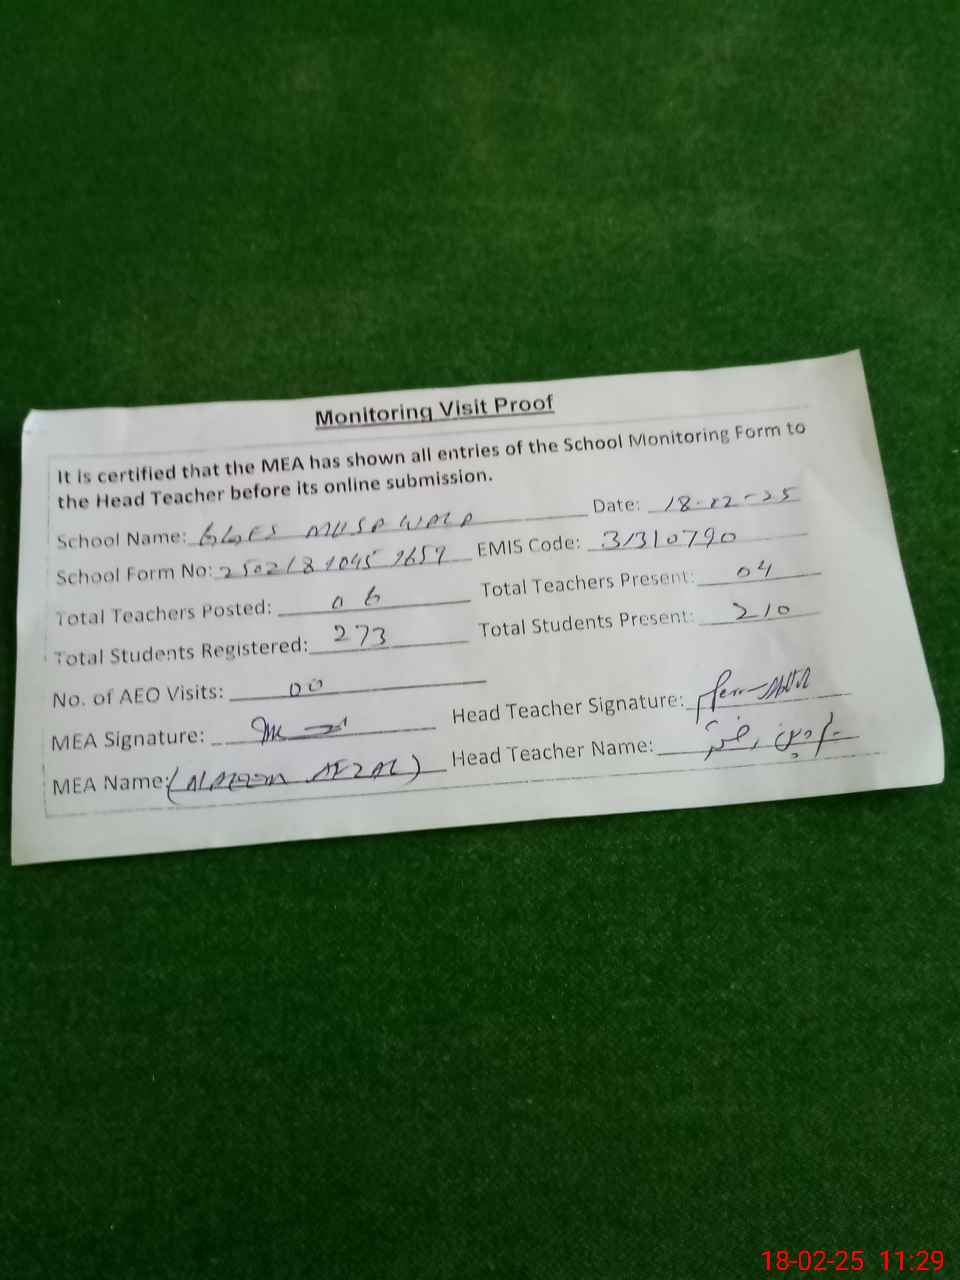 Monitoring Visit Proof
It is certified that the MEA has shown all entries of the School Monitoring Form to
the Head Teacher before its online submission.
School Name: GGES MUSA WALA Date: 18-02-25
School Form No: EMIS Code: 31310790
Total Teachers Posted: 06 Total Teachers Present: 04
Total Students Registered: 273 Total Students Present: 210
No. of AEO Visits: 00
MEA Signature: Head Teacher Signature:
MEA Name: AFZAL) Head Teacher Name:
18-02-25 11:29